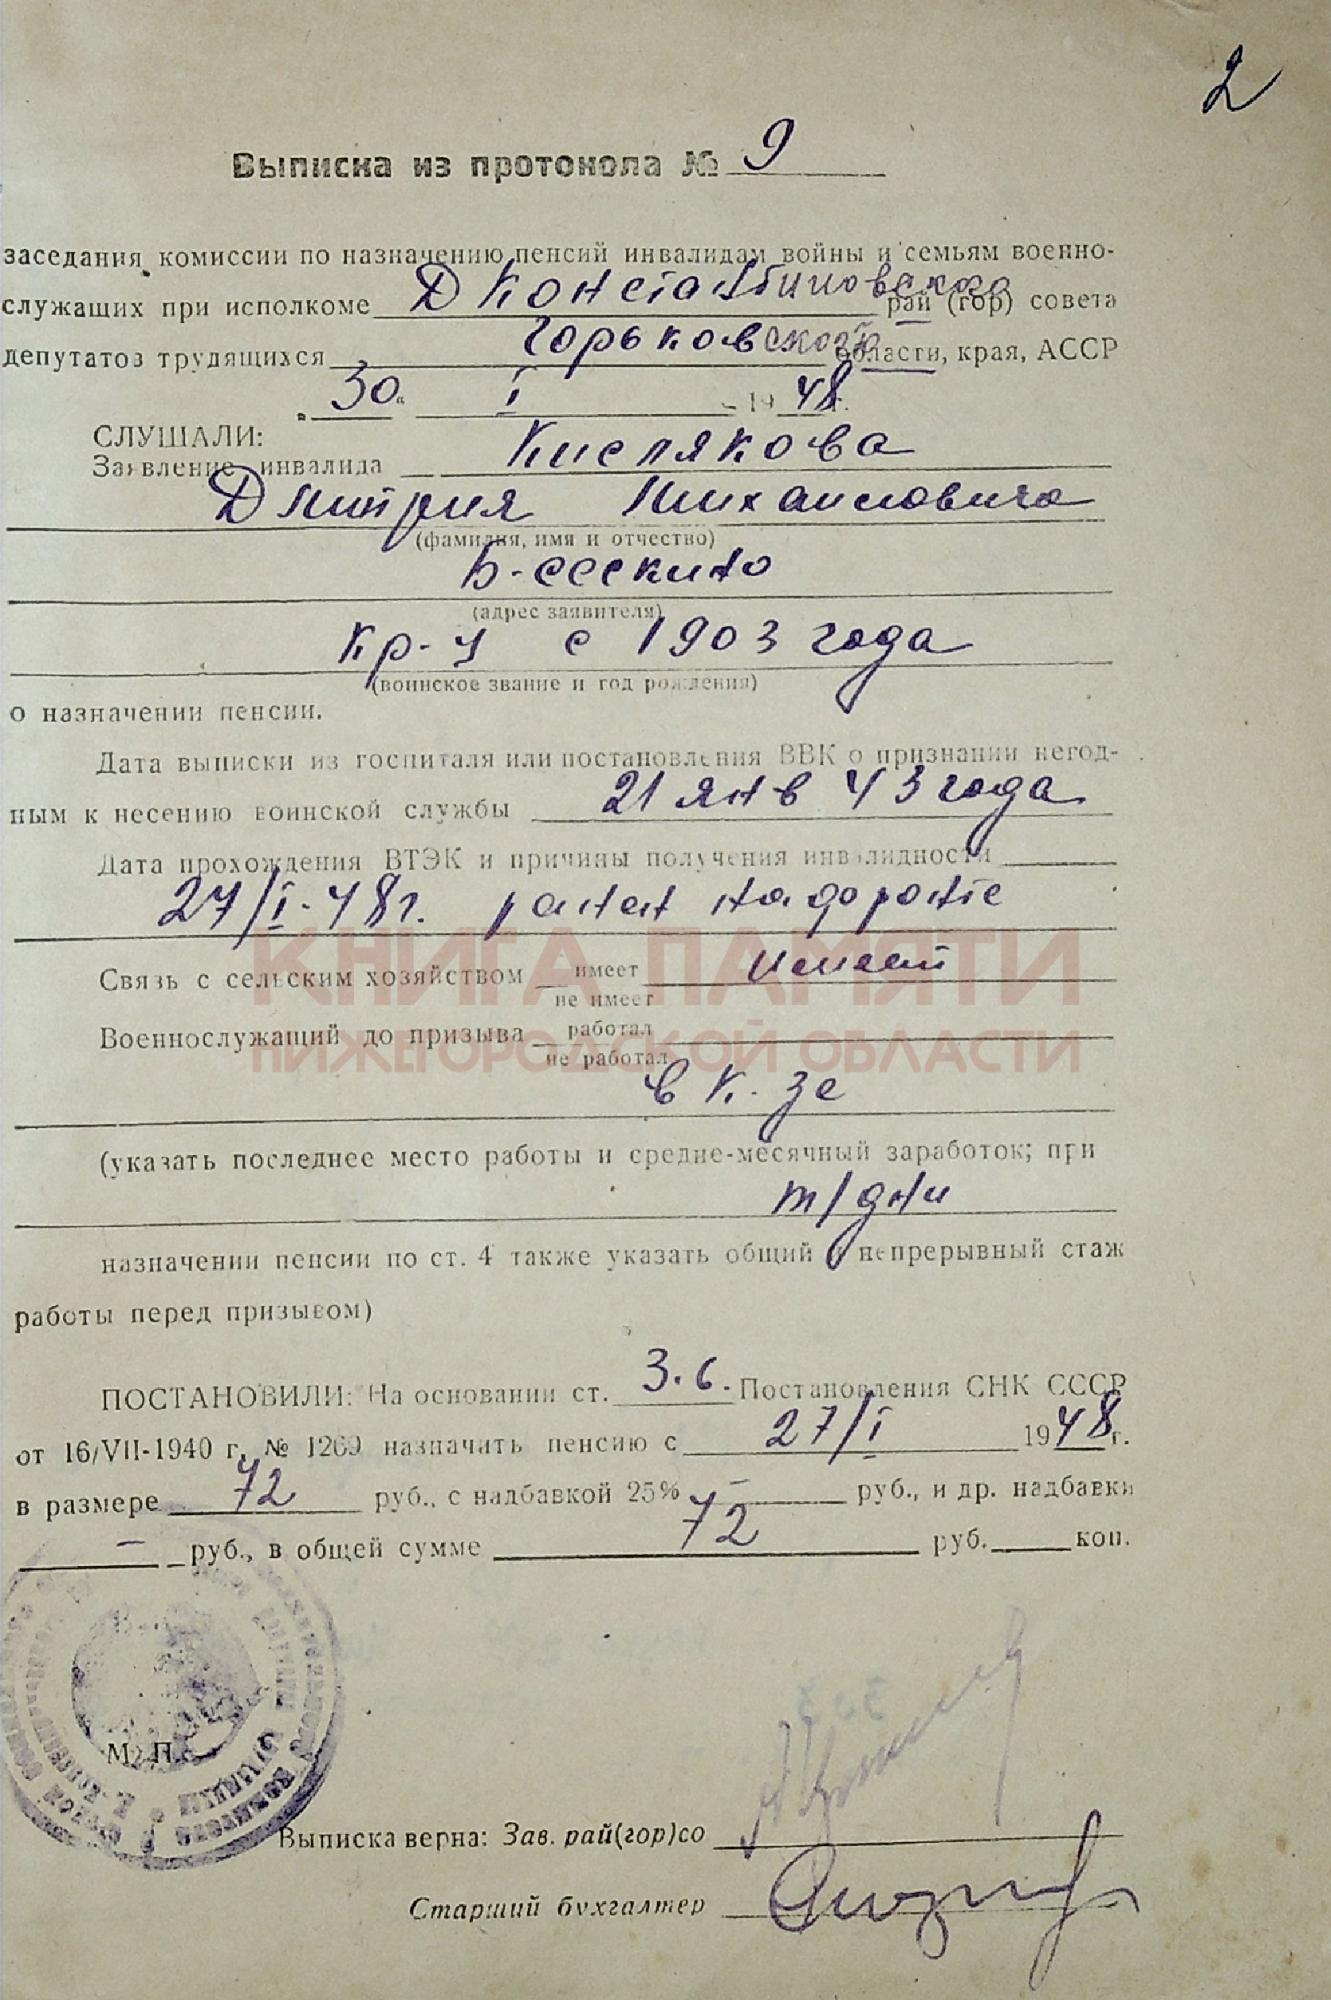 2
Выписка из протокола № 9
заседания комиссии по назначению пенсий инвалидам войны и семьям военно-
служащих при исполкоме Д Константиновского рай (гор) совета
депутатов трудящихся Горьковской области, края, АССР
"30" I 1948 г.
СЛУШАЛИ:
Заявление инвалида Кислякова
Дмитрия Михаиловича
(фамилия, имя и отчество)
Б-сескино
(адрес заявителя)
Кр-ц с 1903 года
(воинское звание и год рождения)
о назначении пенсии.
Дата выписки из госпиталя или постановления ВВК о признании негод-
ным к несению воинской службы 21 янв 43 года
Дата прохождения ВТЭК и причины получения инвалидности
27/I-48г. ранен на фронте
КНИГА ПАМЯТИ
Связь с сельским хозяйством имеет имеет
не имеет
Военнослужащий до призыва работал
НИЖЕГОРОДСКОЙ ОБЛАСТИ
не работал
в к-зе
(указать последнее место работы и средне-месячный заработок; при
т/дни
назначении пенсии по ст. 4 также указать общий и непрерывный стаж
работы перед призывом)
ПОСТАНОВИЛИ: На основании ст. 3.6. Постановления СНК СССР
от 16/VII-1940 г. № 1269 назначить пенсию с 27/I 1948 г.
в размере 72 руб., с надбавкой 25% — руб., и др. надбавки
— руб., в общей сумме 72 руб. коп.
М. П.
Выписка верна: Зав. рай(гор)со
Старший бухгалтер